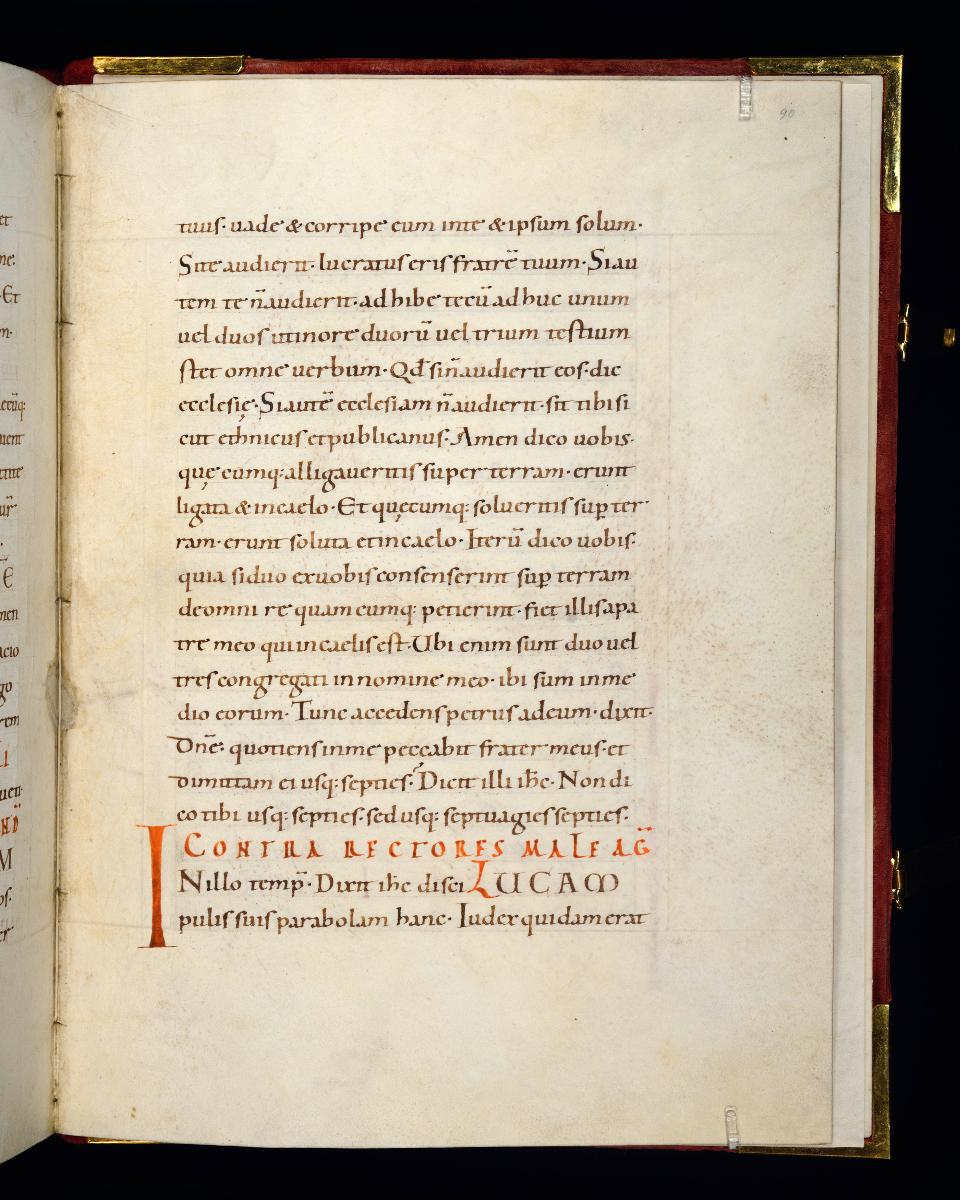 90
tuus· uade & corripe eum inte & ipsum solum·
Si te audierit· lucratus eris fratrē tuum· Si au
tem te n̄ audierit· adhibe tecū adhuc unum
uel duos ut in ore duorū uel trium testium
stet omne uerbum· Qđ si n̄ audierit eos· dic
ecclesię· Si autē ecclesiam n̄ audierit· sit tibi si
cut ethnicus et publicanus· Amen dico uobis·
quęcumq: alligaueritis super terram· erunt
ligata & in caelo· Et quęcumq: solueritis sup̱ ter
ram· erunt soluta et in caelo· Iterū dico uobis·
quia si duo ex uobis consenserint sup̱ terram
de omni re quamcumq: petierint· fiet illis a pa
tre meo qui in caelis est· Ubi enim sunt duo uel
tres congregati in nomine meo· ibi sum in me
dio eorum· Tunc accedens petrus ad eum· dixit·
Dn̄e· quotiens in me peccabit frater meus· et
dimittam ei usq: septies? Dicit illi ih̄c· Non di
co tibi usq: septies· sed usq: septuagies septies·
CONTRA RECTORES MALE AḠ
INillo temp̄· Dixit ih̄c disci LUCAM
pulis suis parabolam hanc· Iudex quidam erat